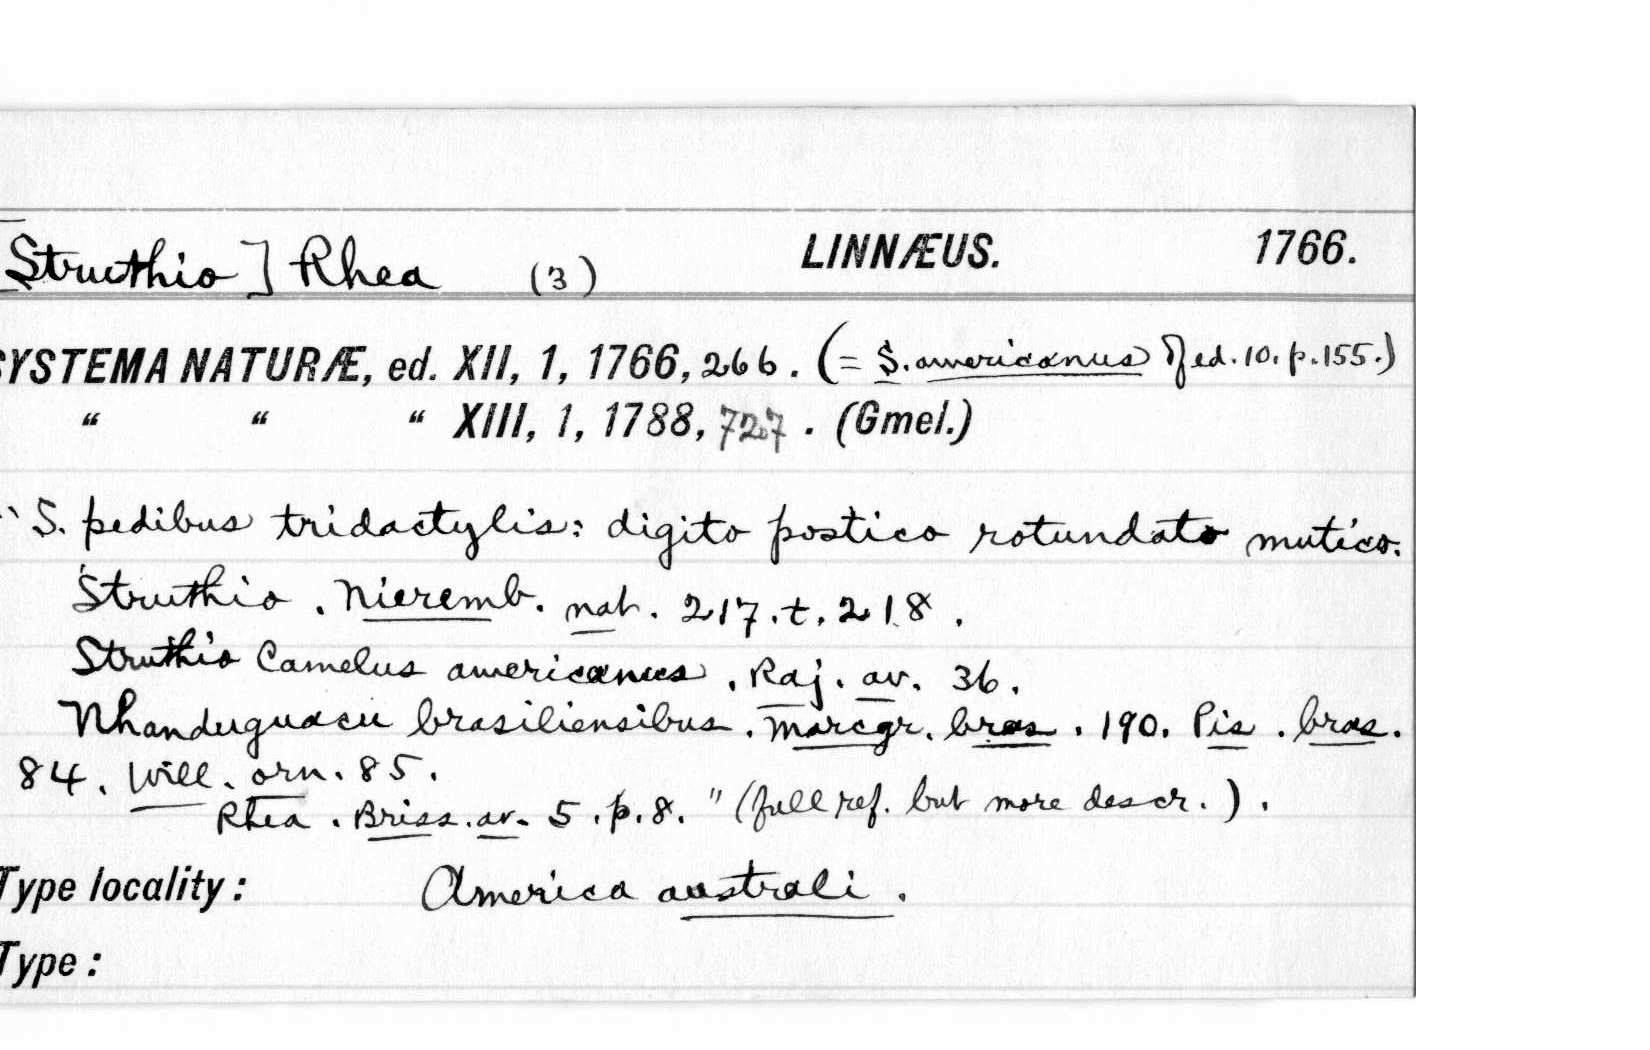 [Struthio] Rhea (3) LINNÆUS. 1766.
SYSTEMA NATURÆ, ed. XII, 1, 1766, 266. (= S. americanus of ed. 10. p. 155.)
" " " XIII, 1, 1788, 727. (Gmel.)
"S. pedibus tridactylis: digito postico rotundato mutico.
Struthio. Nieremb. nat. 217. t. 218.
Struthio Camelus americanus. Raj. av. 36.
Nhanduguacu brasiliensibus. Marcgr. bras. 190. Pis. bras.
84. Will. orn. 85.
Rhea. Briss. av. 5. p. 8." (full ref. but more descr.).
Type locality: America australi.
Type: